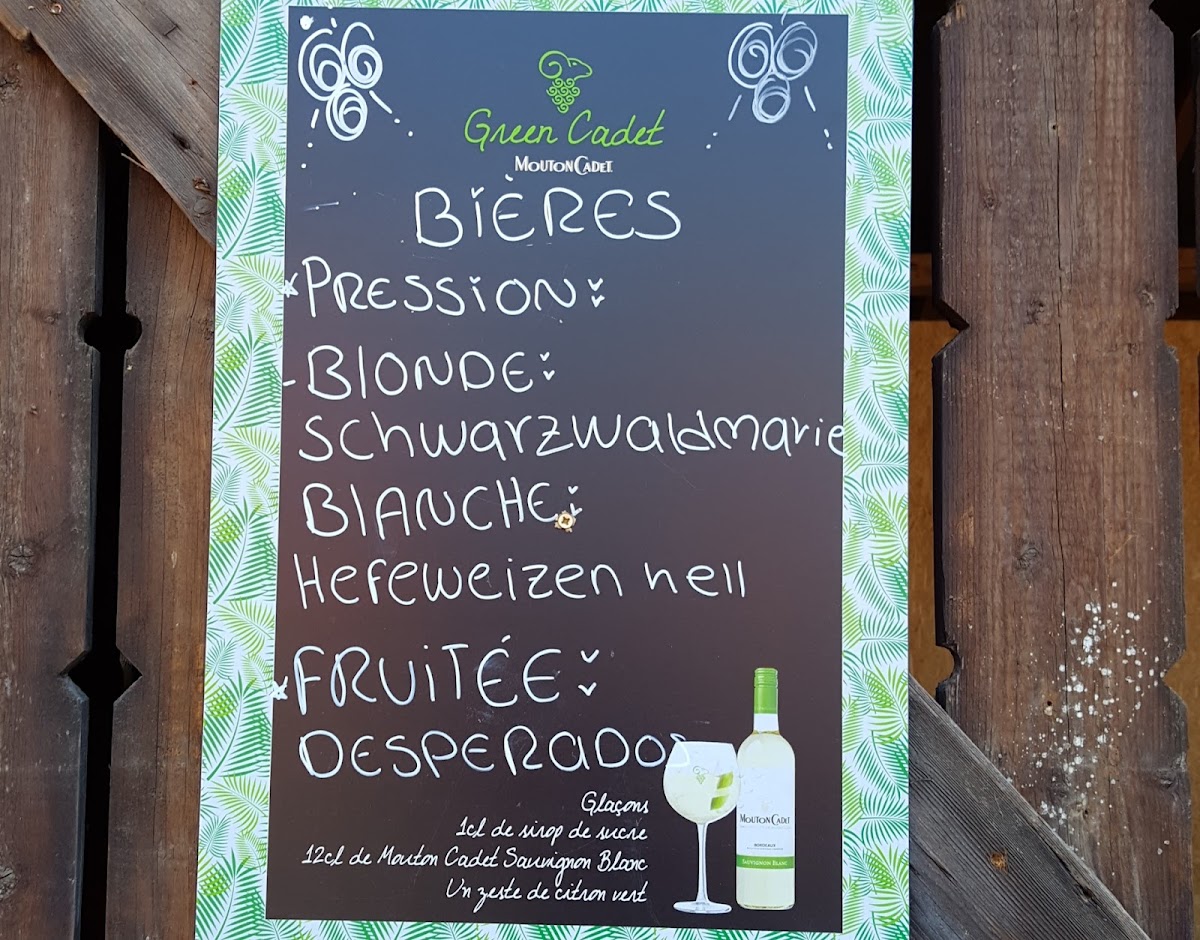 Green Cadet
MOUTON CADET
BIÈRES
*PRESSION:
-BLONDE:
Schwarzwaldmarie
BLANCHE:
Hefeweizen hell
*FRUITÉE:
DESPERADOS
Glaçons
1cl de sirop de sucre
12cl de Mouton Cadet Sauvignon Blanc
Un zeste de citron vert
MOUTON CADET
BORDEAUX
SAUVIGNON BLANC